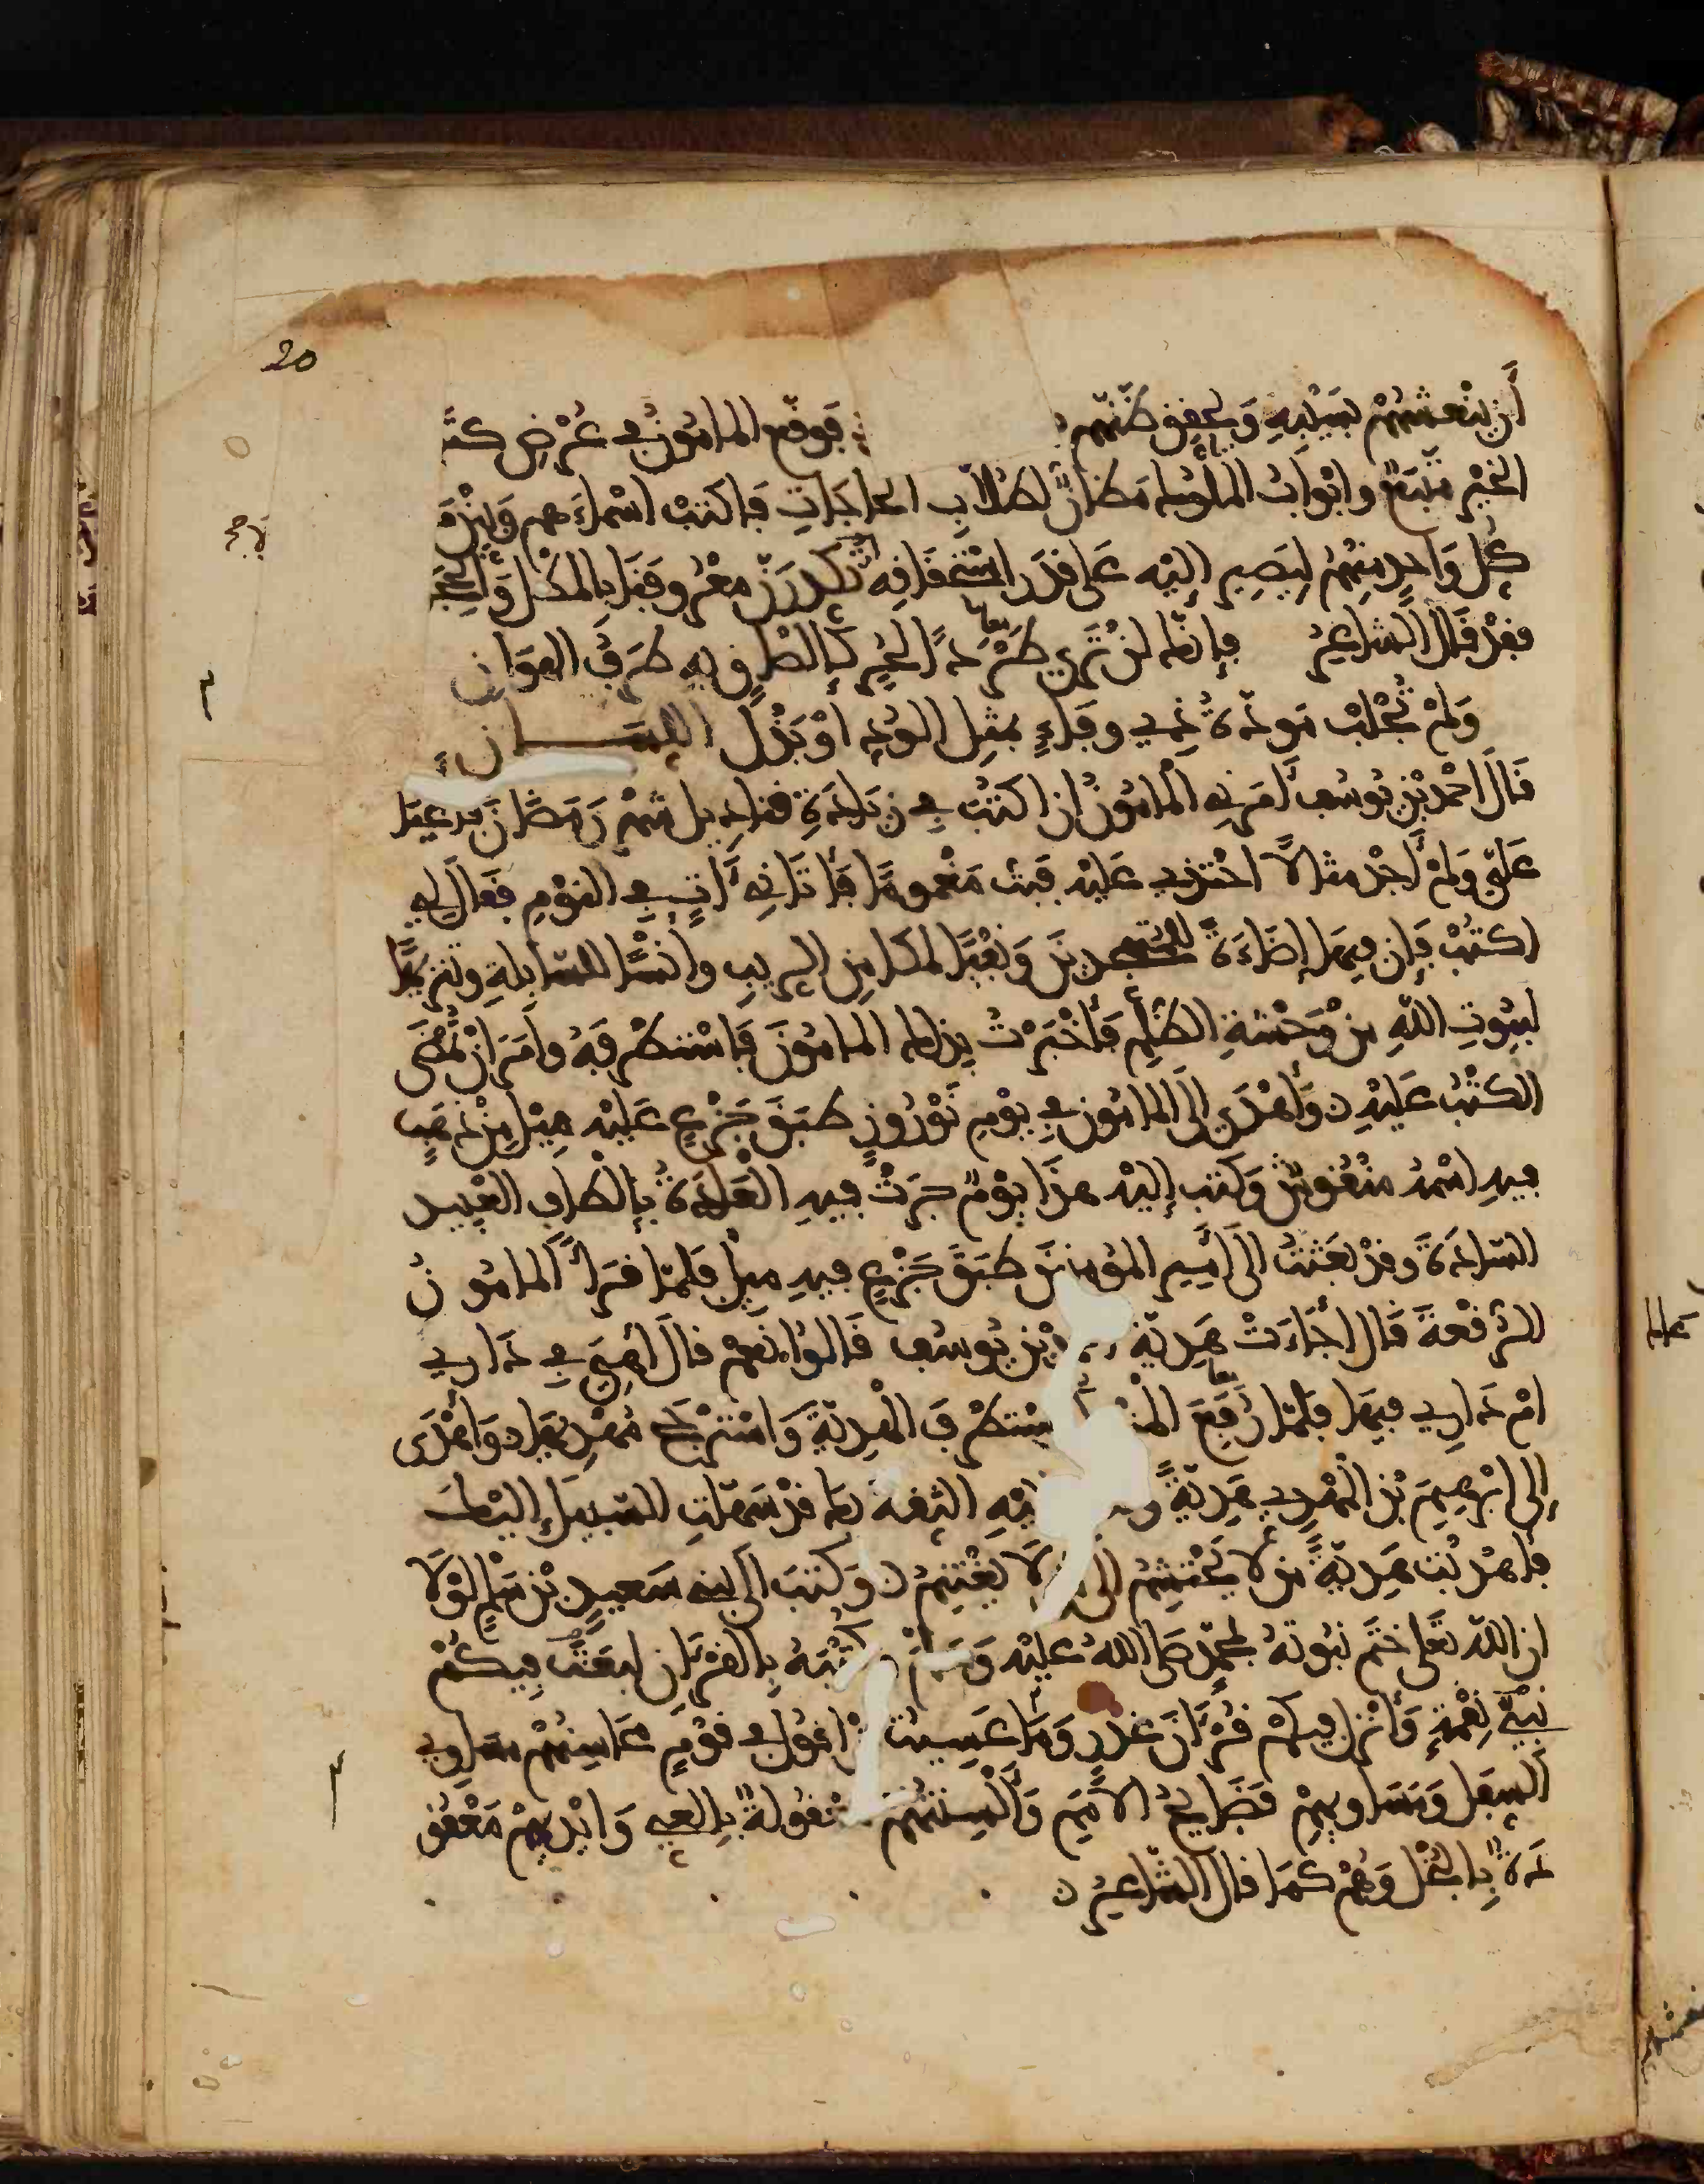 20
أن ينعشهم بسيبه ويحقق ظنهم فوقع المأمون في عرض كتا
الخير متبع وابواب الملوك مظان لطلاب الحاجات فاكتب اسماءهم وبين
كل واحد منهم ليصير إليه على قدر استحقاقه ولا تكدرن معروفنا بالمطل والحجا
فقد قال الشاعر فإنك لن ترى طردا لحر كإلصاق به طرف الهوان
ولم تجلب مودة ذي وفاء بمثل الود أو بذل اللسان
قال احمد بن يوسف أمرني المأمون ان اكتب في زيادة قناديل شهر رمضان
علي ولم أجد مثالا احتذي عليه فبت مغموما فأتاني ءات في النوم فقال لي
اكتب فإن فيها إضاءة للمتهجدين ونفيا لمكامن الريب وانسا للسابلة وتنزيها
لبيوت الله من وحشة الظلم فأخبرت بذلك المامون فاستطرفه وامر ان تمضى
الكتب عليه وأهدى إلى المامون في يوم نوروز طبق جزع عليه ميل من ذهب
فيه اسمه منقوش وكتب إليه هذا يوم جرت فيه العادة بإلطاف العبيد
السادة وقد بعثت الى أمير المؤمنين طبق جزع فيه ميل فلما قرأ المامون
الرقعة قال اجاءت هدية بن يوسف قالوا نعم قال أهي في داري
ام داري فيها فلما رفع المنديل استطرف الهدية واسترجح مهديها وأهدى
إلى ابرهيم بن المهدي هدية إليه الثقة بك قد سهلت السبيل إليك
فأهديت هدية من لا يحتشم الى من لا يغتنم وكتب الى بني سعيد بن سلم لولا
ان الله تعلى ختم نبوته بمحمد صلى الله عليه وسلم وكتبه بالقرءان لبعث فيكم
نبي نقمة وأنزل فيكم قرءان غدر وما عسيت أن اقول في قوم محاسنهم مساوي
السفل ومساويهم فضايح الامم وألسنتهم معقولة بالعي وايديهم معقو
دة بالبخل وهم كما قال الشاعر